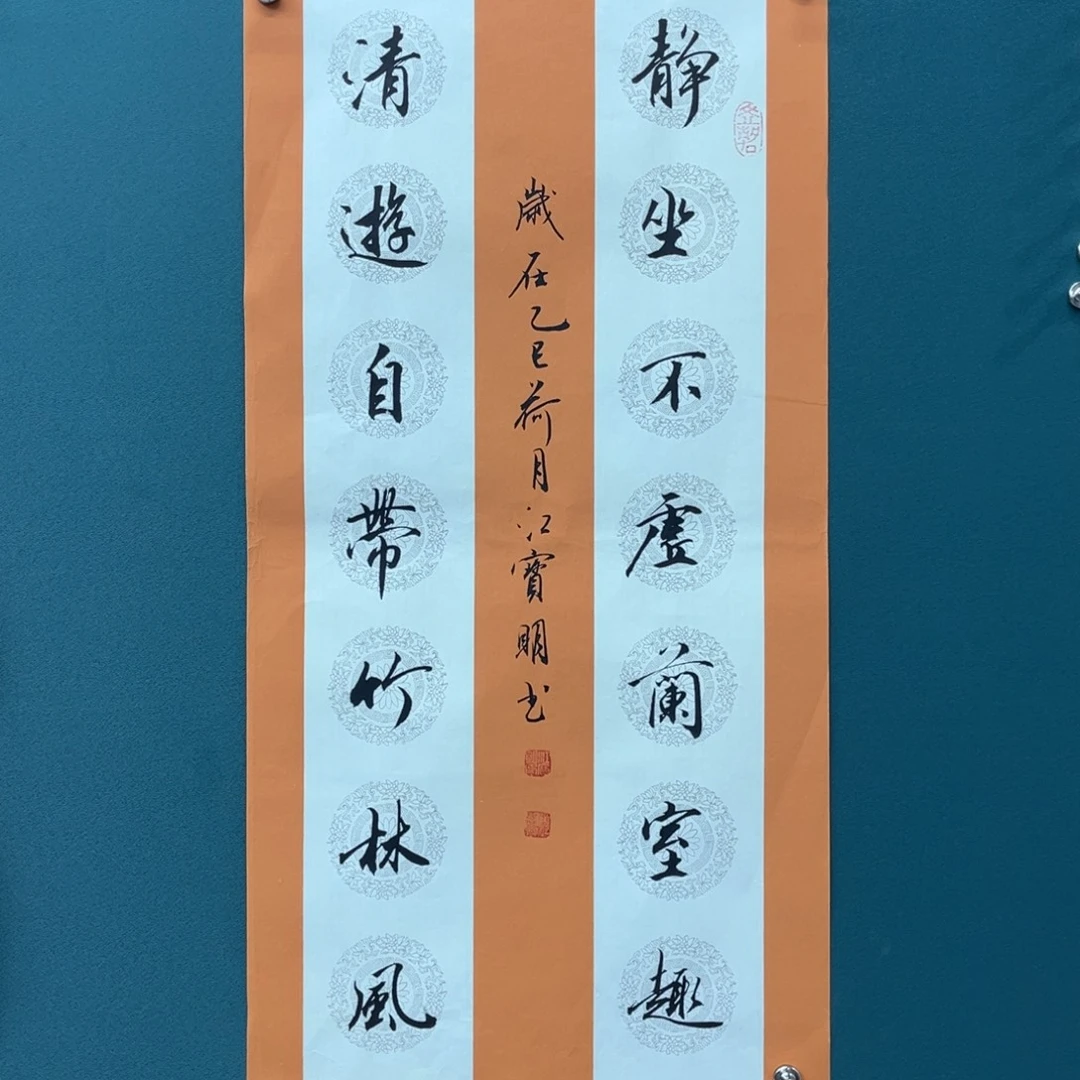 靜坐不虛蘭室趣
清遊自帶竹林風
歲在乙巳荷月江寶明书